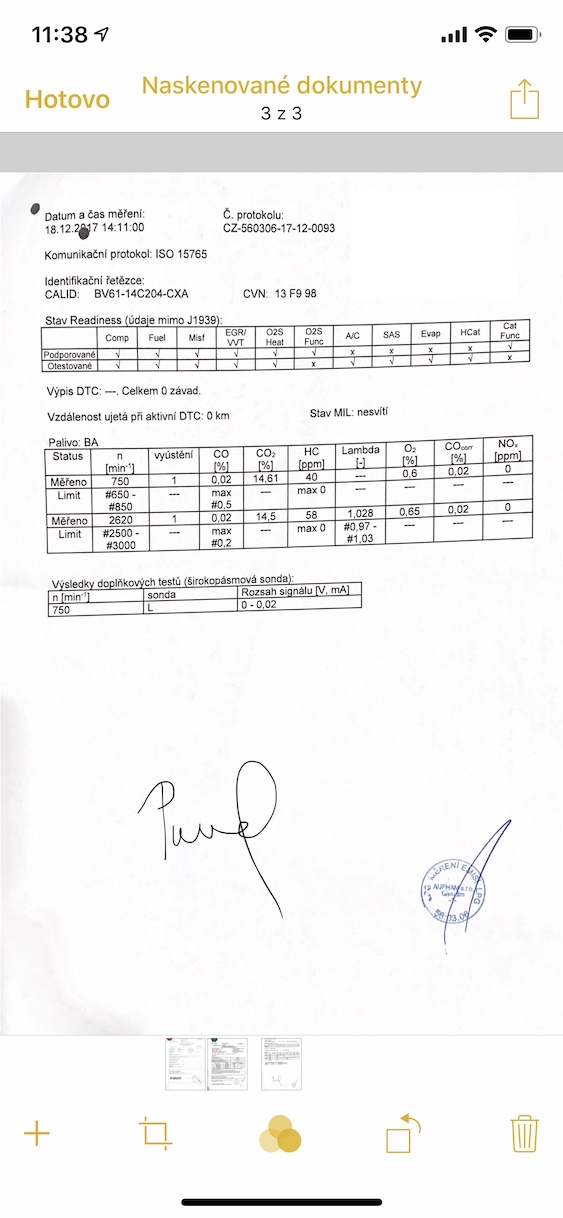 11:38
Hotovo
Naskenované dokumenty
3 z 3
Datum a čas měření:
18.12.2017 14:11:00
Č. protokolu:
CZ-560306-17-12-0093
Komunikační protokol: ISO 15765
Identifikační řetězce:
CALID: BV61-14C204-CXA CVN: 13 F9 98
Stav Readiness (údaje mimo J1939):
Comp Fuel Misf EGR/VVT O2S Heat O2S Func A/C SAS Evap HCat Cat Func
Podporované √ √ √ √ √ √ x x x x √
Otestované √ √ √ √ √ x √ √ √ √ x
Výpis DTC: ---. Celkem 0 závad.
Vzdálenost ujetá při aktivní DTC: 0 km Stav MIL: nesvítí
Palivo: BA
Status n [min⁻¹] vyústění CO [%] CO₂ [%] HC [ppm] Lambda [-] O₂ [%] COcorr [%] NOₓ [ppm]
Měřeno 750 1 0,02 14,61 40 --- 0,6 0,02 0
Limit #650 - #850 --- max #0,5 --- max 0 --- --- --- ---
Měřeno 2620 1 0,02 14,5 58 1,028 0,65 0,02 0
Limit #2500 - #3000 --- max #0,2 --- max 0 #0,97 - #1,03 --- --- ---
Výsledky doplňkových testů (širokopásmová sonda):
n [min⁻¹] sonda Rozsah signálu [V, mA]
750 L 0 - 0,02
MĚŘENÍ EMISÍ LPG
s.r.o.
56.03.06